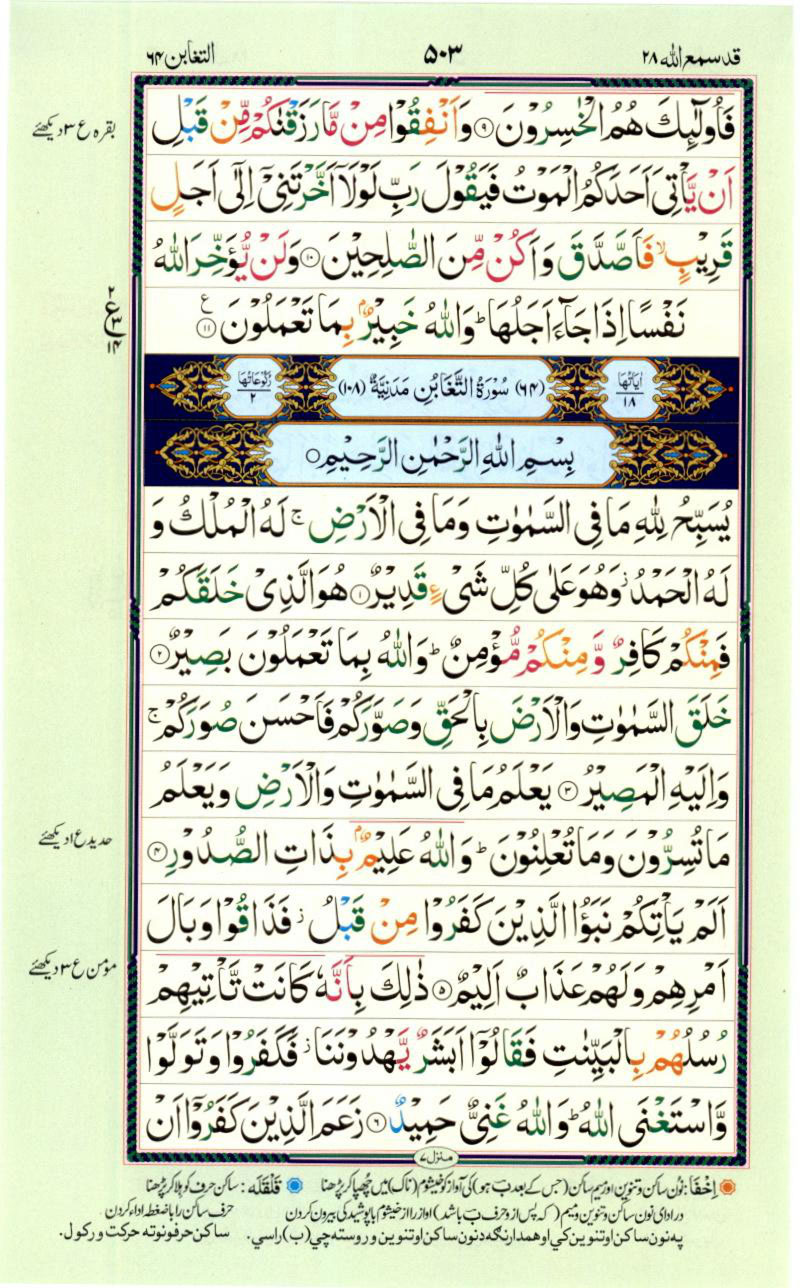 قد سمع الله ۲۸
۵۰۳
التغابن ۶۴
فَاُولٰٓئِكَ هُمُ الْخٰسِرُوْنَ ۹ وَاَنْفِقُوْا مِنْ مَّا رَزَقْنٰكُمْ مِّنْ قَبْلِ
بقره ع ۳ دیکھئے
اَنْ يَّاْتِىَ اَحَدَكُمُ الْمَوْتُ فَيَقُوْلَ رَبِّ لَوْلَاۤ اَخَّرْتَنِىْۤ اِلٰٓى اَجَلٍ
قَرِيْبٍ ۙ فَاَصَّدَّقَ وَاَكُنْ مِّنَ الصّٰلِحِيْنَ ۱۰ وَلَنْ يُّؤَخِّرَ اللّٰهُ
نَفْسًا اِذَا جَآءَ اَجَلُهَا ؕ وَاللّٰهُ خَبِيْرٌۢ بِمَا تَعْمَلُوْنَ ۱۱ ع
۲
ع ۳
۱۴
اٰيَاتُهَا ۱۸
(۶۴) سُوْرَةُ التَّغَابُنِ مَدَنِيَّةٌ (۱۰۸)
رُكُوْعَاتُهَا ۲
بِسْمِ اللّٰهِ الرَّحْمٰنِ الرَّحِيْمِ
يُسَبِّحُ لِلّٰهِ مَا فِى السَّمٰوٰتِ وَمَا فِى الْاَرْضِ ۚ لَهُ الْمُلْكُ وَ
لَهُ الْحَمْدُ ز وَهُوَ عَلٰى كُلِّ شَىْءٍ قَدِيْرٌ ۱ هُوَ الَّذِىْ خَلَقَكُمْ
فَمِنْكُمْ كَافِرٌ وَّمِنْكُمْ مُّؤْمِنٌ ؕ وَاللّٰهُ بِمَا تَعْمَلُوْنَ بَصِيْرٌ ۲
خَلَقَ السَّمٰوٰتِ وَالْاَرْضَ بِالْحَقِّ وَصَوَّرَكُمْ فَاَحْسَنَ صُوَرَكُمْ ۚ
وَاِلَيْهِ الْمَصِيْرُ ۳ يَعْلَمُ مَا فِى السَّمٰوٰتِ وَالْاَرْضِ وَيَعْلَمُ
مَا تُسِرُّوْنَ وَمَا تُعْلِنُوْنَ ؕ وَاللّٰهُ عَلِيْمٌۢ بِذَاتِ الصُّدُوْرِ ۴
حدید ع ۱ دیکھئے
اَلَمْ يَاْتِكُمْ نَبَؤُا الَّذِيْنَ كَفَرُوْا مِنْ قَبْلُ ز فَذَاقُوْا وَبَالَ
اَمْرِهِمْ وَلَهُمْ عَذَابٌ اَلِيْمٌ ۵ ذٰلِكَ بِاَنَّهٗ كَانَتْ تَّاْتِيْهِمْ
مؤمن ع ۳ دیکھئے
رُسُلُهُمْ بِالْبَيِّنٰتِ فَقَالُوْۤا اَبَشَرٌ يَّهْدُوْنَنَا ز فَكَفَرُوْا وَتَوَلَّوْا
وَّاسْتَغْنَى اللّٰهُ ؕ وَاللّٰهُ غَنِىٌّ حَمِيْدٌ ۶ زَعَمَ الَّذِيْنَ كَفَرُوْۤا اَنْ
منزل ۷
اِخفَا: نون ساکن و تنوین اور میم ساکن (جس کے بعد ب ہو) کی آواز کو خیشوم (ناک) میں چھپا کر پڑھنا قَلقَلَه: ساکن حرف کو ہلا کر پڑھنا
در ادای نون ساکن و تنوین و میم (که پس از و حرف ب باشد) آواز را از خیشوم با پوشیدگی بیرون کردن حرف ساکن را با ضغطه اداء کردن
په نون ساکن او تنوین کي او همدارنګه د نون ساکن او تنوین وروسته چي (ب) راسي. ساکن حرفونو ته حرکت ورکول.